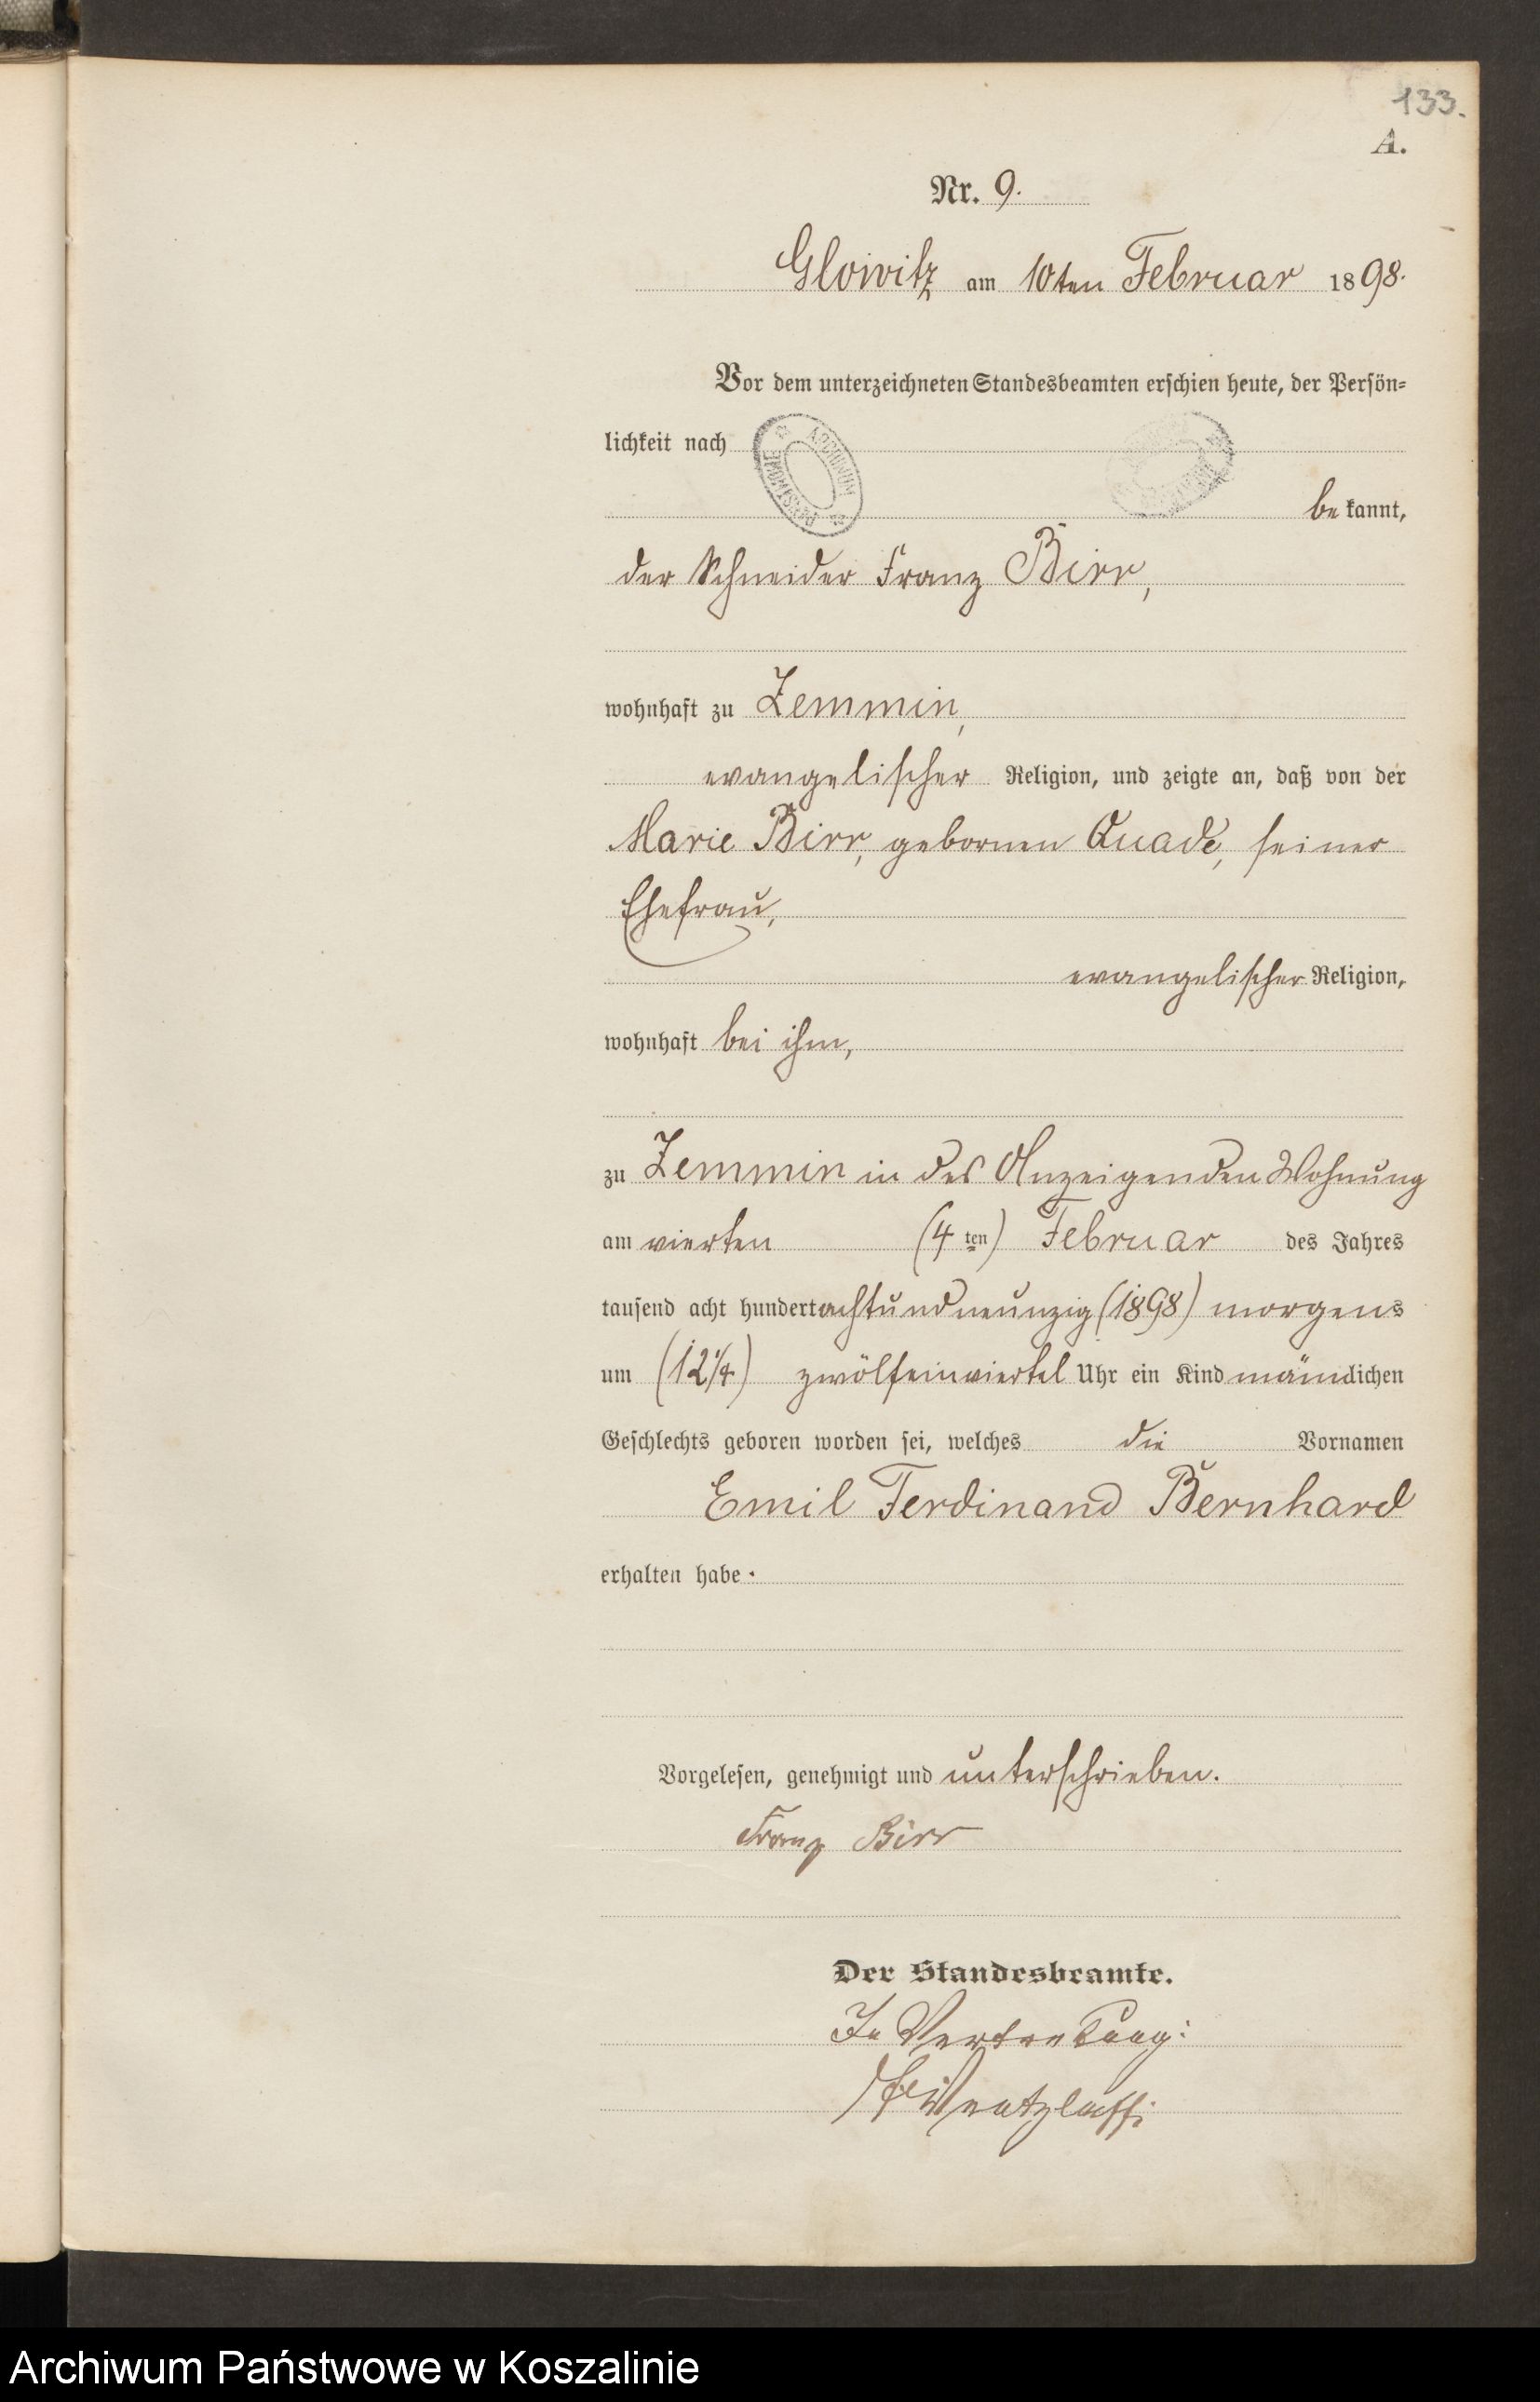 133.
A.
Nr. 9.
Glowitz am 10ten Februar 1898.
Vor dem unterzeichneten Standesbeamten erschien heute, der Persön-
lichkeit nach
be kannt,
der Schneider Franz Birr,
wohnhaft zu Zemmin,
evangelischer Religion, und zeigte an, daß von der
Marie Birr, gebornen Quade, seiner
Ehefrau,
evangelischer Religion,
wohnhaft bei ihm,
zu Zemmin in des Anzeigenden Wohnung
am vierten (4ten) Februar des Jahres
tausend acht hundert achtundneunzig (1898) morgens
um (12 1/4) zwölfeinviertel Uhr ein Kind männlichen
Geschlechts geboren worden sei, welches die Vornamen
Emil Ferdinand Bernhard
erhalten habe.
Vorgelesen, genehmigt und unterschrieben.
Franz Birr
Der Standesbeamte.
In Vertretung:
Archiwum Państwowe w Koszalinie